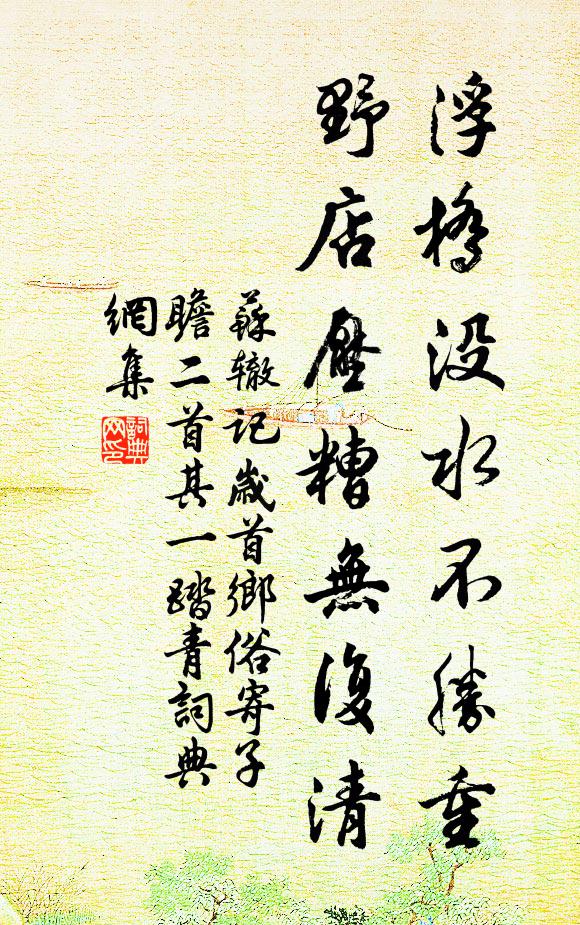 浮橋没水不勝重
野店壓糟無復清
蘇辙记歲首鄉俗寄子
瞻二首其一踏青詞典
網集
詞典
网印